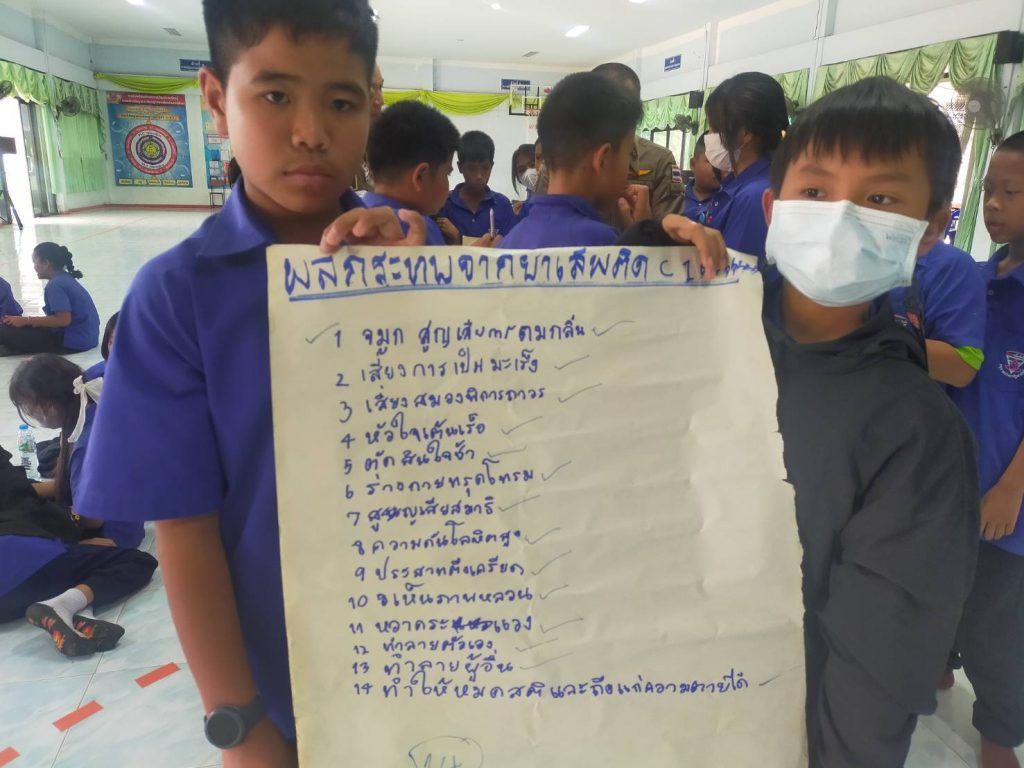 ผลกระทบจากยาเสพติด
1 จมูก สูญเสียการดมกลิ่น
2 เสี่ยงการเป็นมะเร็ง
3 เสี่ยงสมองพิการถาวร
4 หัวใจเต้นเร็ว
5 ตัดสินใจช้า
6 ร่างกายทรุดโทรม
7 สูญเสียสมาธิ
8 ความดันโลหิตสูง
9 ประสาทตึงเครียด
10 เห็นภาพหลอน
11 หวาดระแวง
12 ทำลายตัวเอง
13 ทำลายผู้อื่น
14 ทำให้หมดสติและถึงแก่ความตายได้
14